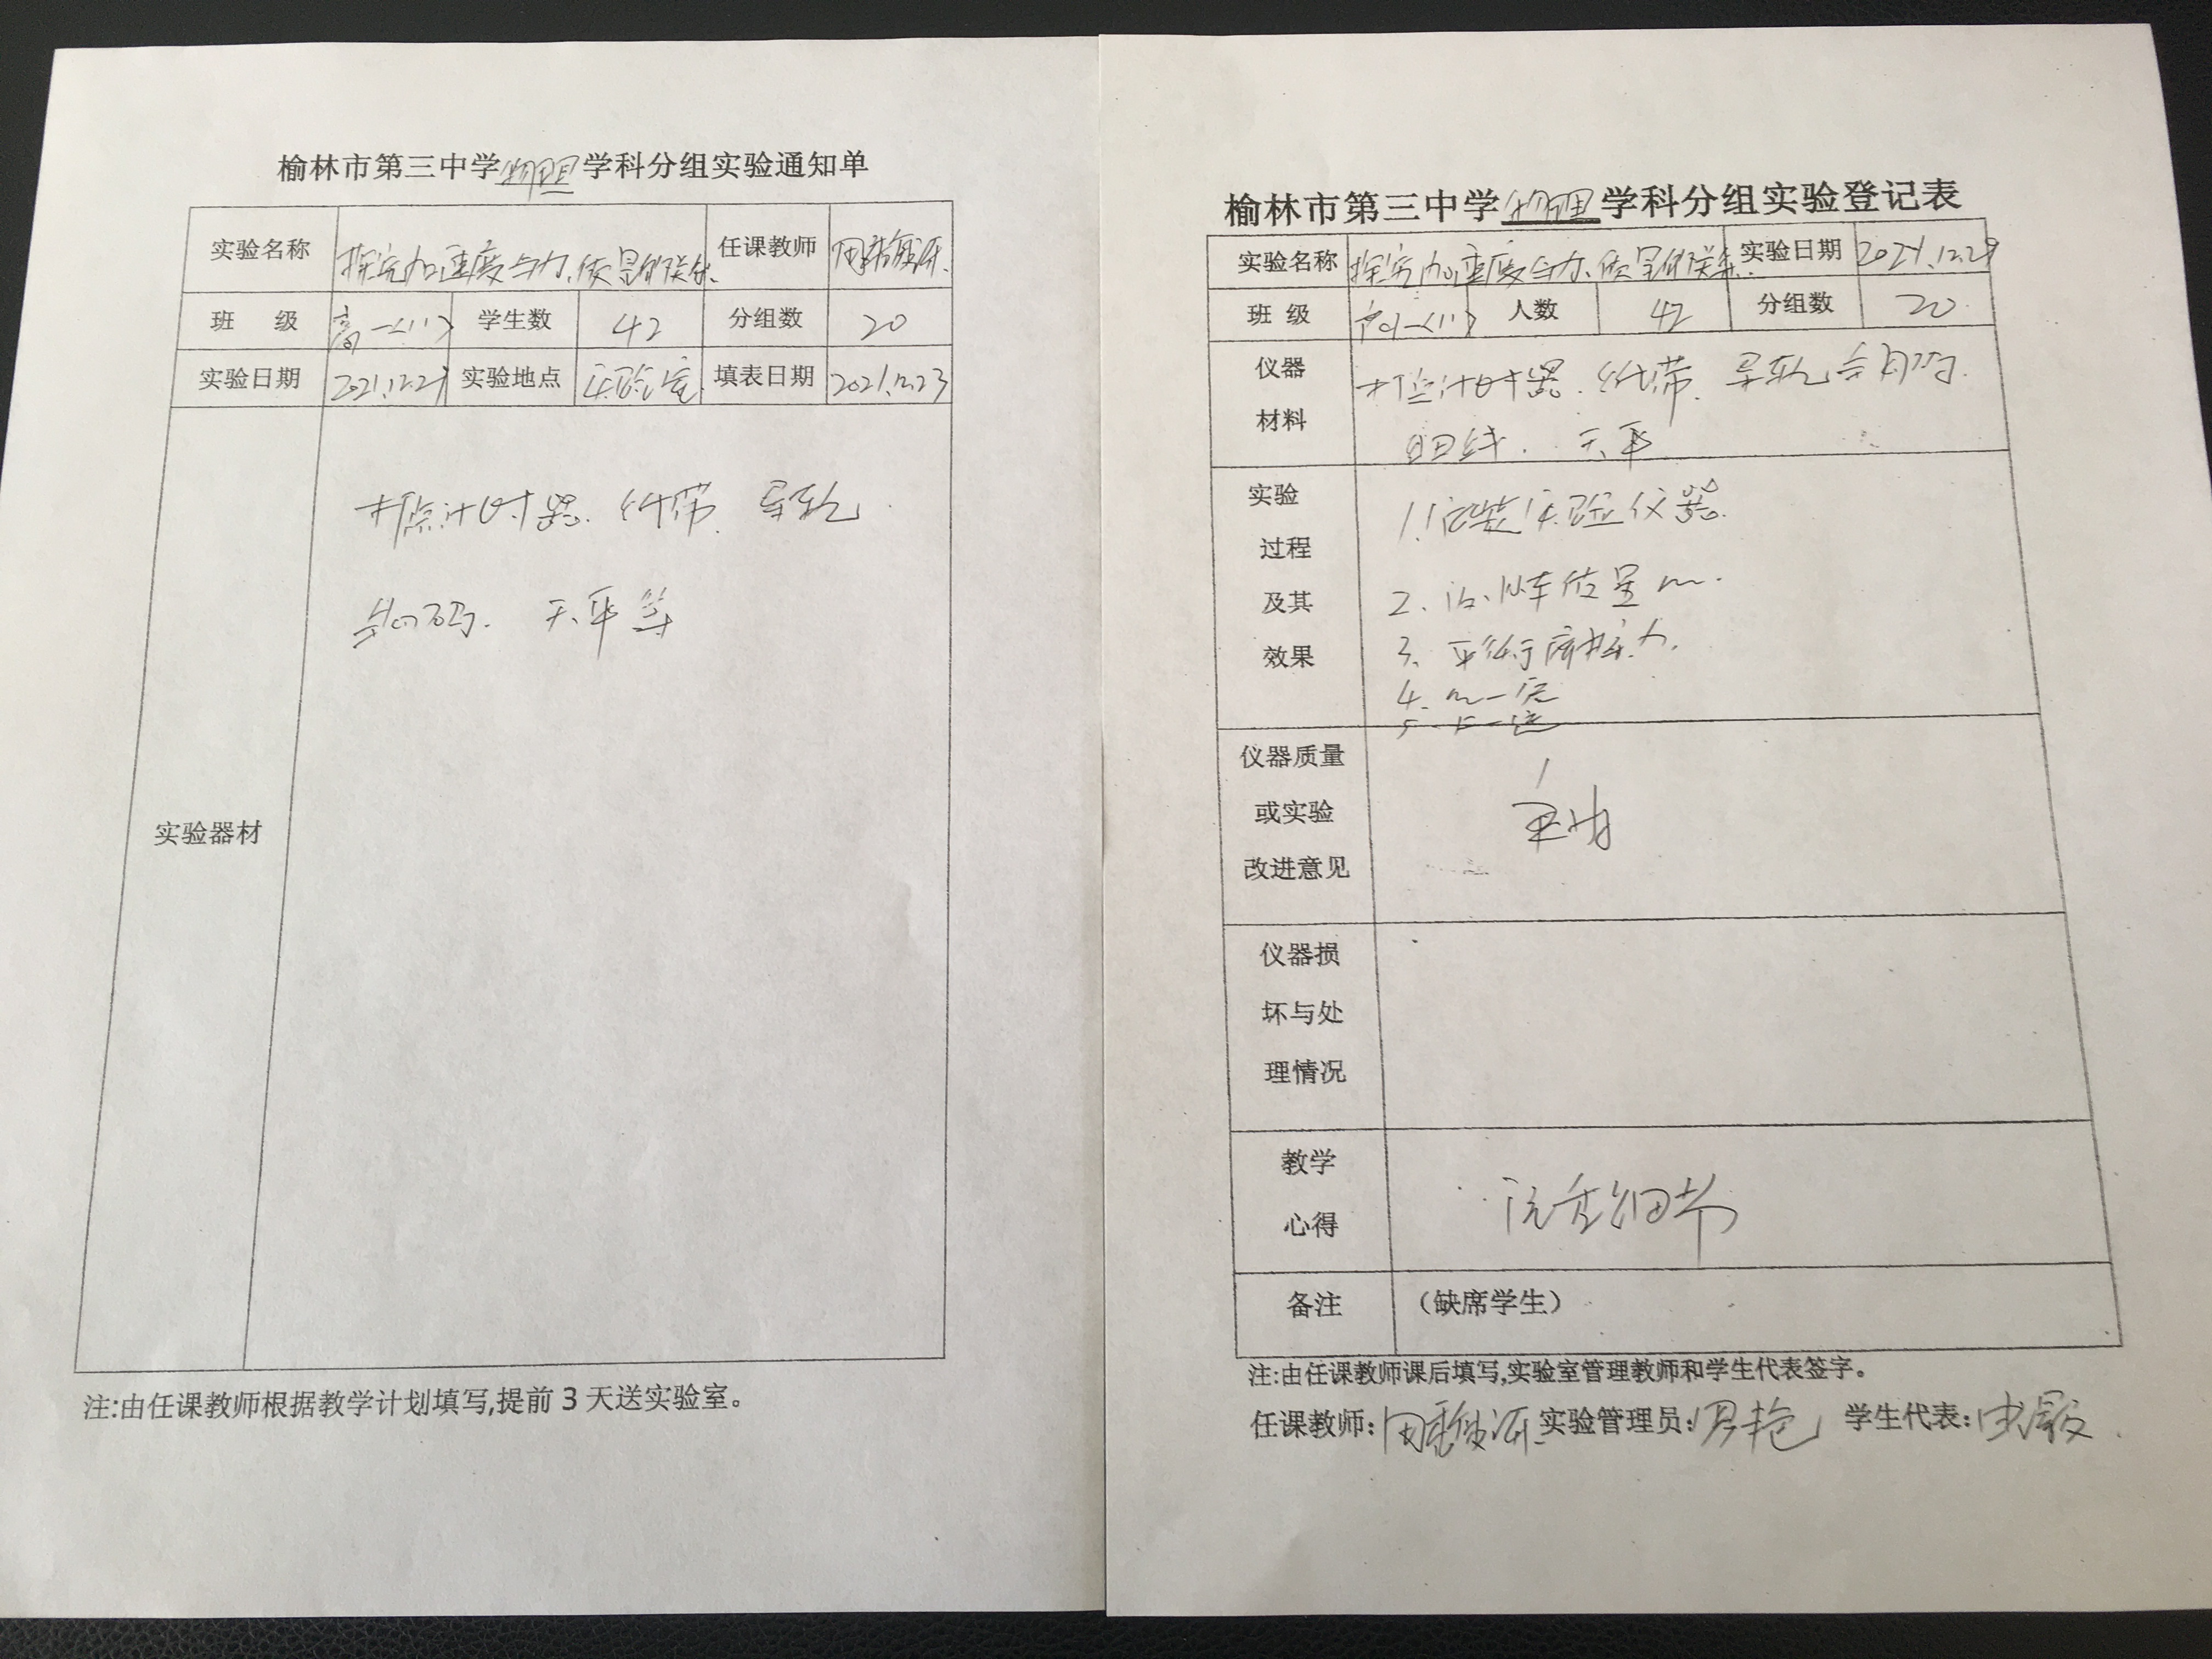 榆林市第三中学物理学科分组实验通知单
实验名称 探究加速度与力、质量的联系 任课教师
班 级 高一(11) 学生数 42 分组数 20
实验日期 2021.12.29 实验地点 实验室 填表日期 2021.12.23
实验器材
打点计时器. 纸带. 导轨.
钩码. 天平等
注:由任课教师根据教学计划填写,提前3天送实验室。
榆林市第三中学物理学科分组实验登记表
实验名称 探究加速度与力、质量的联系. 实验日期 2021.12.29
班 级 高一(11) 人数 42 分组数 20
仪器
材料
打点计时器. 纸带. 导轨
细线. 天平
实验
过程
及其
效果
1. 安装实验仪器.
2. 小车质量m.
3. 平衡摩擦力.
4. m一定
5. F一定
仪器质量
或实验
改进意见
仪器损
坏与处
理情况
教学
心得
注重细节
备注 (缺席学生)
注:由任课教师课后填写,实验室管理教师和学生代表签字。
任课教师: 实验管理员: 学生代表: